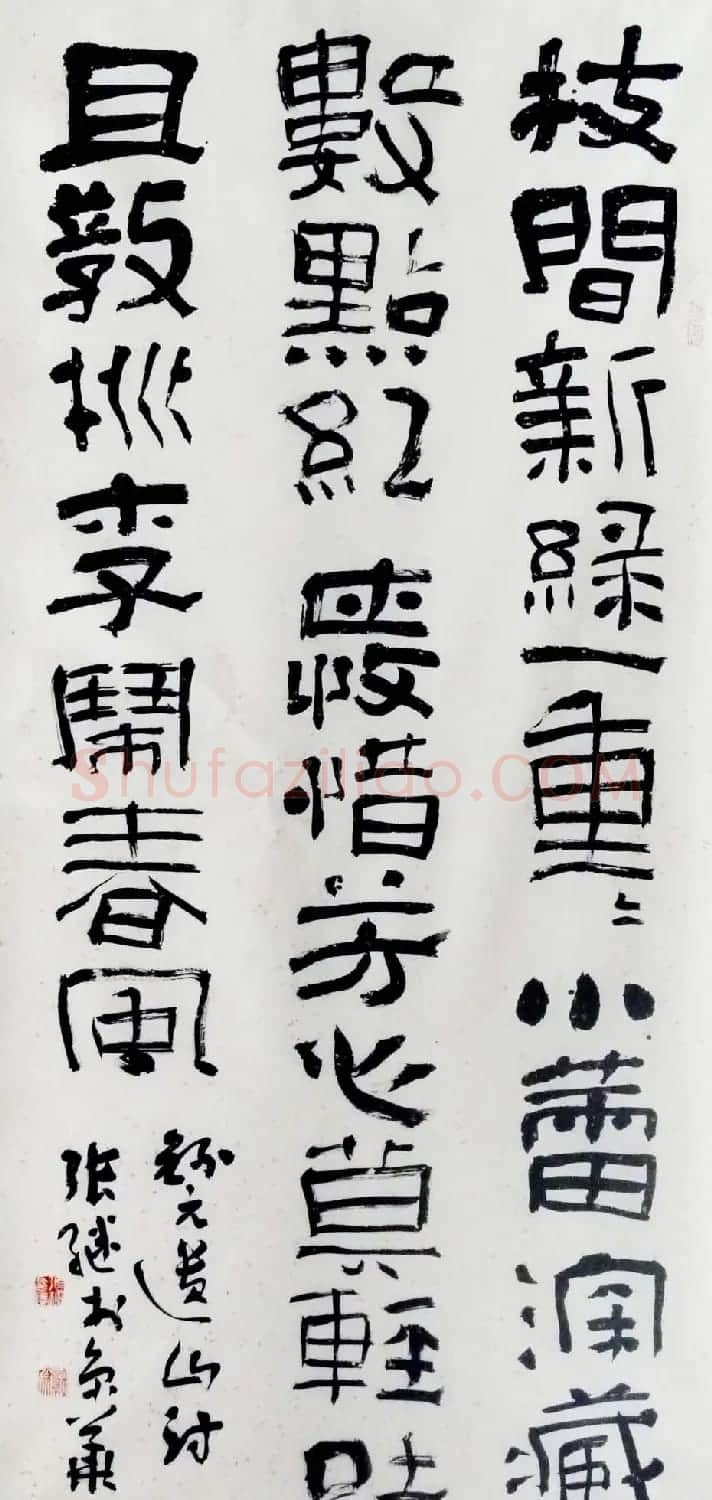 枝間新綠一重〻小蕾深藏
數點紅愛惜芳心莫輕吐
且教桃李鬧春風
錄元遺山詩
張繼於京華
Shufaziliao.COM